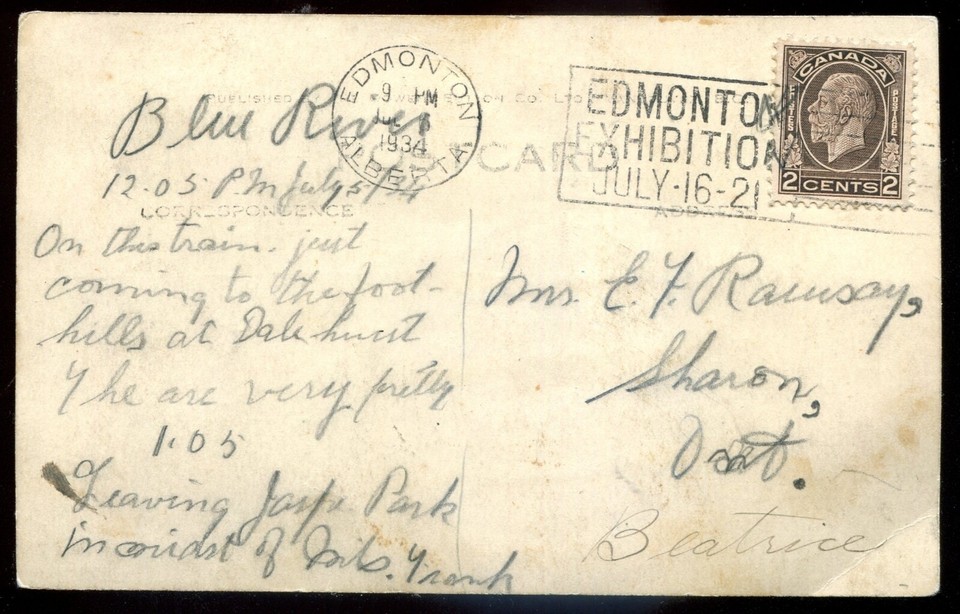 Blue River
12.05 PM July 5/34
On this train. just
coming to the foot-
hills at Dalehurst
The are very pretty
1.05
Leaving Jaspe Park
in midst of Mts. Frank
EDMONTON
9 PM
JUL
1934
ALBERTA
EDMONTON
EXHIBITION
JULY·16-21
CANADA
POSTES
POSTAGE
2 CENTS 2
PUBLISHED
POSTCARD
CORRESPONDENCE
ADDRESS
Mrs. E. F. Ramsay,
Sharon,
Ont.
Beatrice